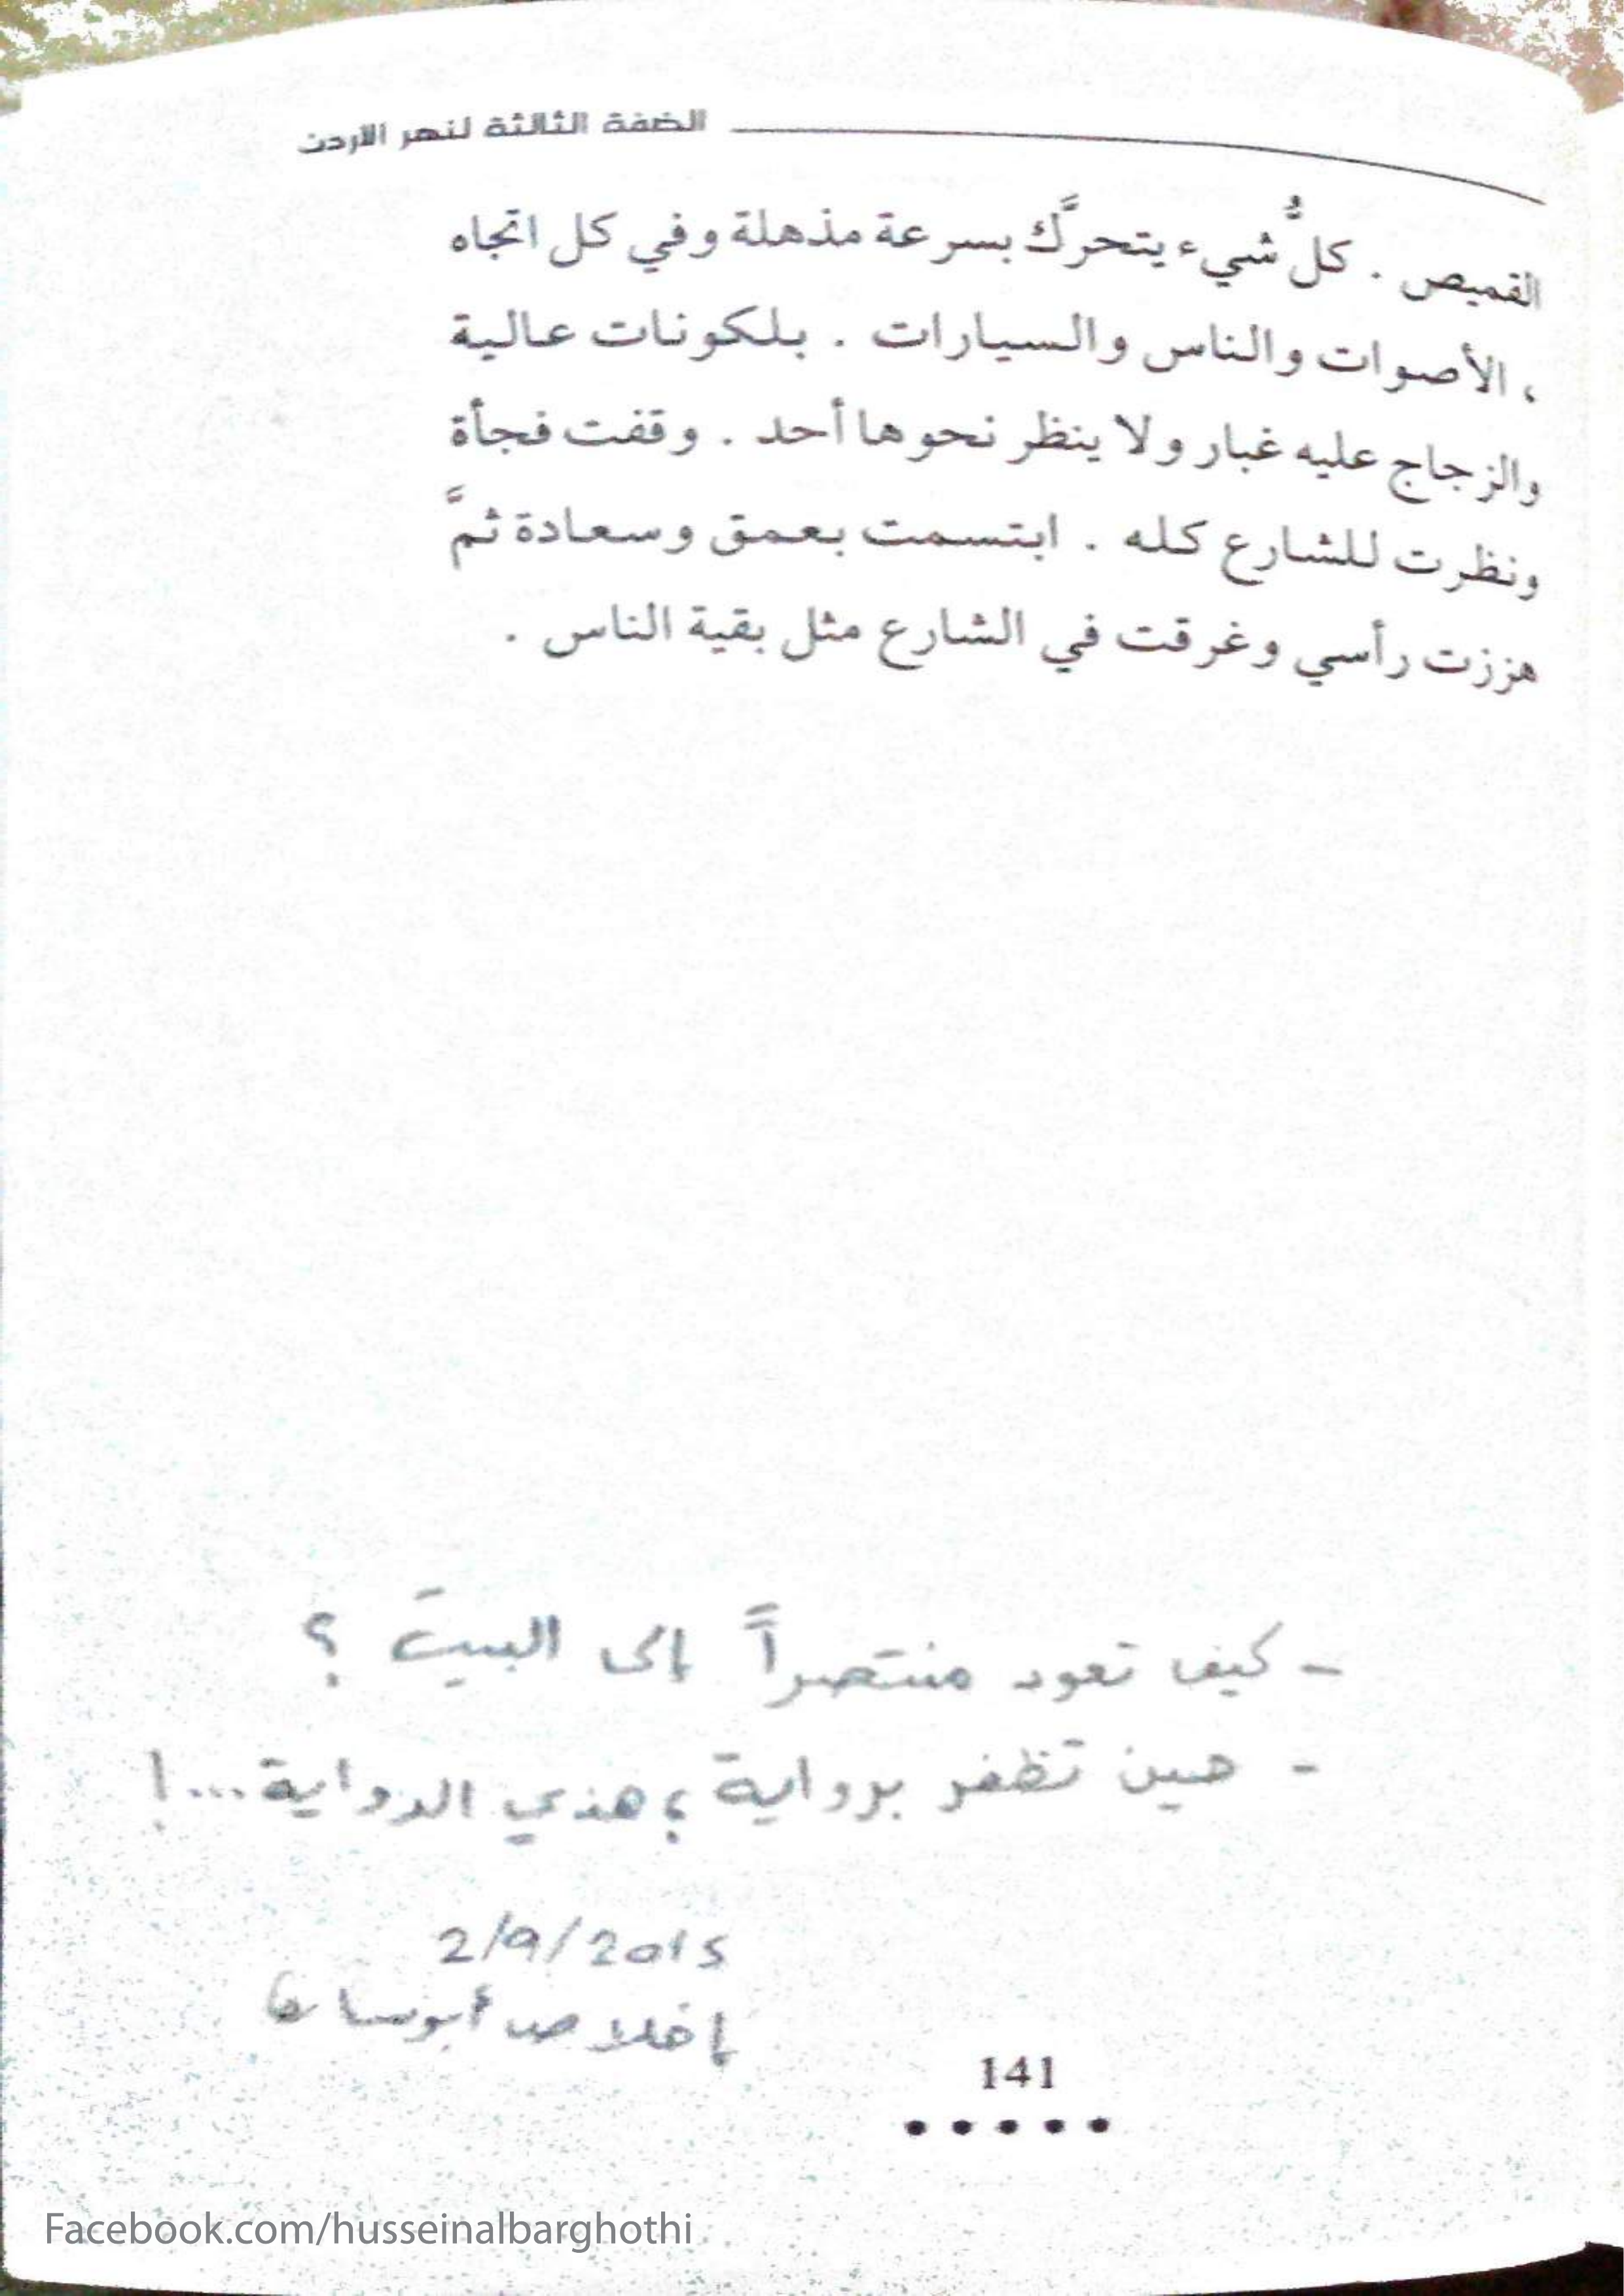 الضفة الثالثة لنهر الأردن
القميص . كلُّ شيء يتحرَّك بسرعة مذهلة وفي كل اتجاه
، الأصوات والناس والسيارات . بلكونات عالية
والزجاج عليه غبار ولا ينظر نحوها أحد . وقفت فجأة
ونظرت للشارع كله . ابتسمت بعمق وسعادة ثمَّ
هززت رأسي وغرقت في الشارع مثل بقية الناس .
- كيف تعود منتصراً إلى البيت ؟
- حين تظفر برواية ؛ هذي الرواية...!
2/9/2015
إخلاص أبو
141
Facebook.com/husseinalbarghothi